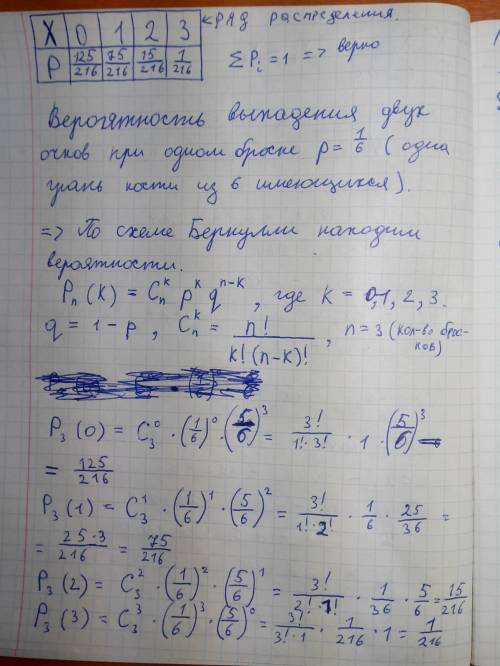 X 0 1 2 3 ← ряд распределения.
P 125/216 75/216 15/216 1/216 ∑ Pᵢ = 1 => верно
Вероятность выпадения двух
очков при одном броске p = 1/6 (одна
грань кости из 6 имеющихся).
=> По схеме Бернулли находим
вероятности.
Pₙ(K) = Cₙᵏ pᵏ qⁿ⁻ᵏ, где K = 0,1, 2, 3.
q = 1 - p, Cₙᵏ = n!/(k!(n-k)!), n = 3 (кол-во брос-
ков)
P₃(0) = C₃⁰ · (1/6)⁰ · (5/6)³ = 3!/(1! · 3!) · 1 · (5/6)³
= 125/216
P₃(1) = C₃¹ · (1/6)¹ · (5/6)² = 3!/(1! · 2!) · 1/6 · 25/36 =
= 25·3/216 = 75/216
P₃(2) = C₃² · (1/6)² · (5/6)¹ = 3!/(2! · 1!) · 1/36 · 5/6 = 15/216
P₃(3) = C₃³ · (1/6)³ · (5/6)⁰ = 3!/(3! · 1) · 1/216 · 1 = 1/216